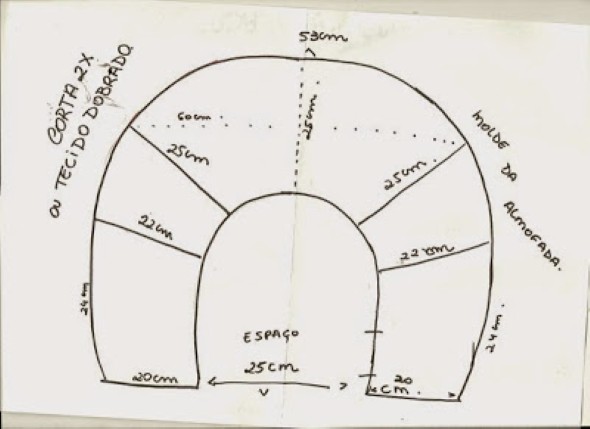 53cm
CORTA 2X
OU TECIDO DOBRADO
MOLDE DA
ALMOFADA.
60cm
25cm.
25cm
25cm.
22cm
22cm
24cm
24cm.
ESPAÇO
25cm
20cm
20
cm.